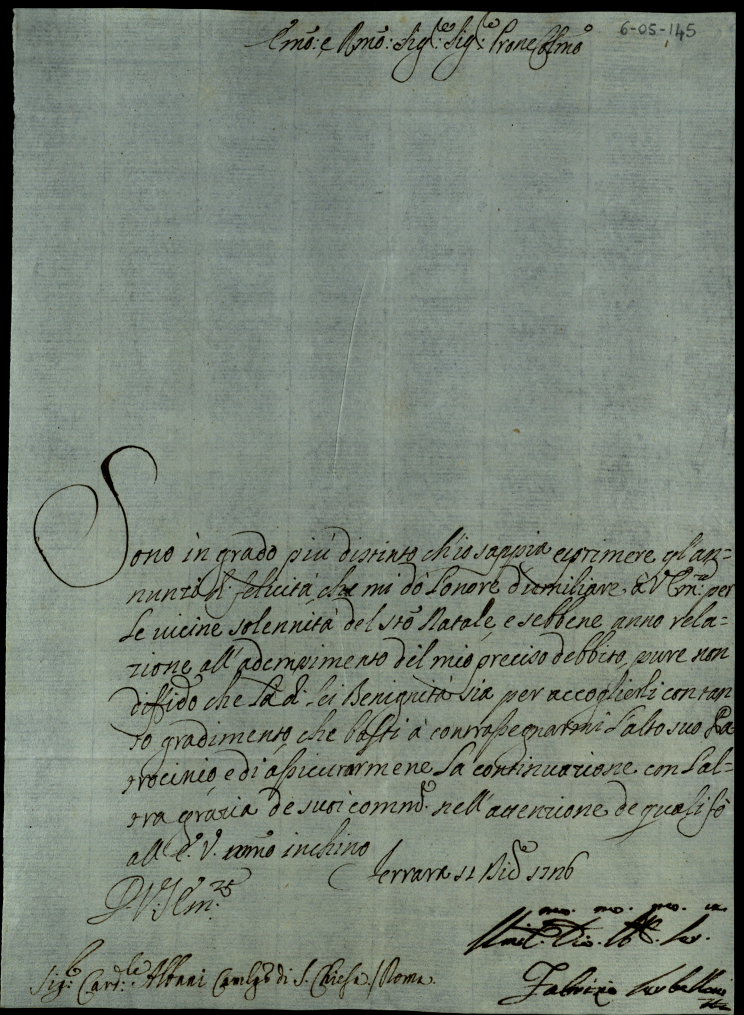 6-05-145
Emo: e Rmo: Sigre: Sigre: Prone Colmo
Sono in grado più distinto ch'io sappia esprimere gl'an=
nunzi di felicità che mi dò l'onore d'umiliare à V. Em:za per
le vicine solennità del Sto Natale, e sebbene anno rela=
zione all'adempimento del mio preciso debbito, pure non
diffido che la di lei Benignità sia per accoglierli con tan
to gradimento che basti à contrassegnarmi l'alto suo Pa
trocinio, e di assicurarmene la continuazione con l'al=
tra grazia de suoi comndi. nell'attenzione de quali fò
all'E. V. umo inchino
Ferrara 21 Dice 1726
D. V. Em:za
Umil:mo Dio:mo Obb:mo Ser.
Fabrizio Serbelloni
Sig:r Card:le Albani Camlgo di S. Chiesa / Roma.